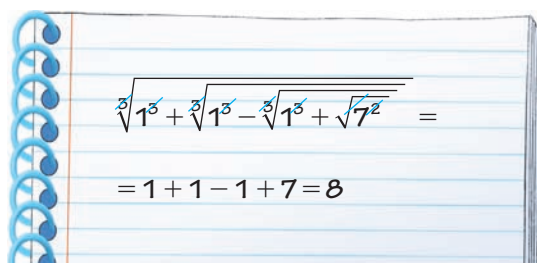 ∛(1³ + ∛(1³ − ∛(1³ + √(7²)))) =
= 1 + 1 − 1 + 7 = 8